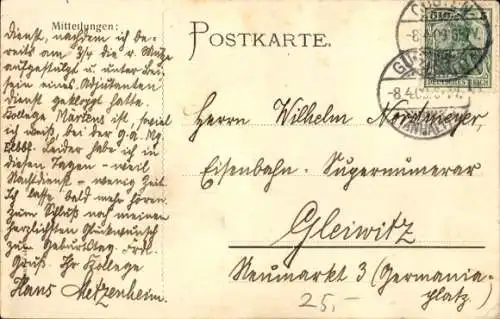 Mitteilungen:
dienst, nachdem ich be-
reits am 3/4 die r. Mütze
aufgestülpt u. unter Bei-
sein eines Adjutanten
dienst geklopft hatte.
Kollege Martens ist, soviel
ich weiß, bei der g.a. Mg.
Leider habe ich in
diesen Tagen - weil
Nachtdienst - wenig Zeit.
Ich lasse bald mehr hören.
Zum Schluß noch meinen
herzlichsten Glückwunsch
zum Geburtstag. Frdl.
Gruß. Ihr Kollege
Hans Metzenheim.
POSTKARTE.
-8.4.09.
-8.4.09.
(ANHALT)
DEUTSCHES REICH
Herrn Wilhelm Nordmeyer,
Eisenbahn-Supernumerar
Gleiwitz
Neumarkt 3 (Germania-
platz)
25,-